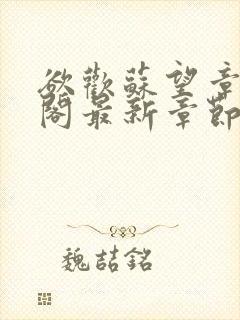 欲歡蘇望章
閣最新章節
魏喆銘